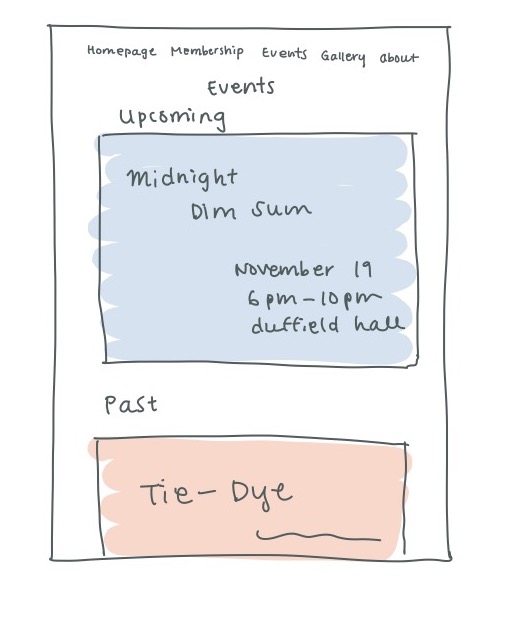 Homepage Membership Events Gallery about
Events
Upcoming
Midnight
Dim Sum
November 19
6pm-10pm
duffield hall
Past
Tie-Dye